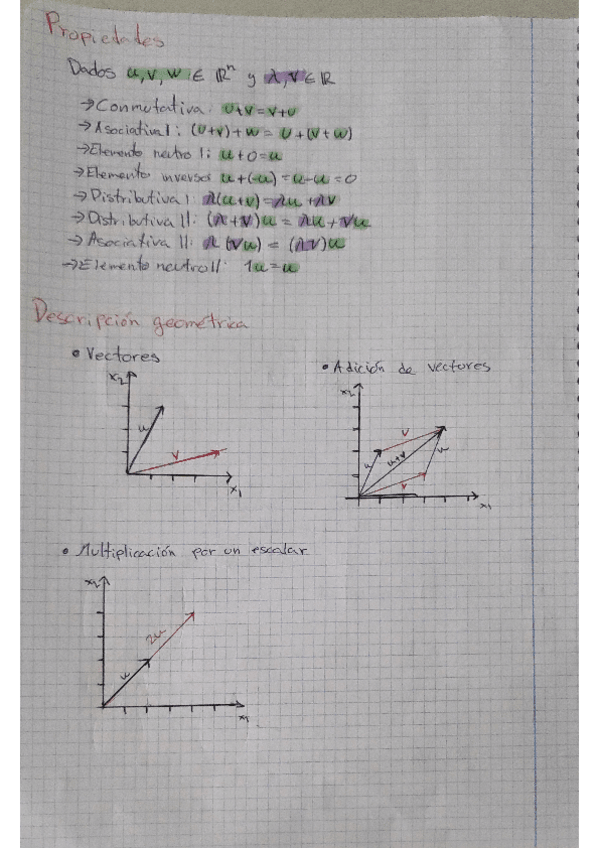 Propiedades
Dados u, v, w ∈ ℝⁿ y λ, V ∈ ℝ
→Conmutativa: u+v=v+u
→Asociativa I: (u+v)+w = u+(v+w)
→Elemento neutro I: u+0=u
→Elemento inverso: u+(-u)=u-u=0
→Distributiva I: λ(u+v)=λu+λv
→Distributiva II: (λ+V)u = λu+Vu
→Asociativa II: λ(Vu) = (λV)u
→Elemento neutro II: 1u=u
Descripción geométrica
• Vectores
• Adición de vectores
x₂
u
v
x₁
x₂
v
u
u+v
u
v
x₁
• Multiplicación por un escalar
x₂
2u
u
x₁